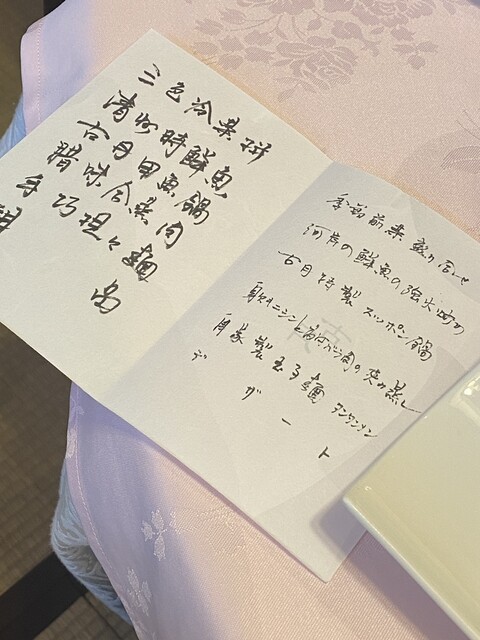 三色冷菜拼
清炒時鮮魚
古月甲魚鍋
腊味合蒸肉
手巧坦々麺
季節前菜盛り合せ
河岸の鮮魚の強火炒め
古月特製スッポン鍋
身欠きニシンと豚肉の挟み蒸し
自家製玉子麺 タンタンメン
デザート